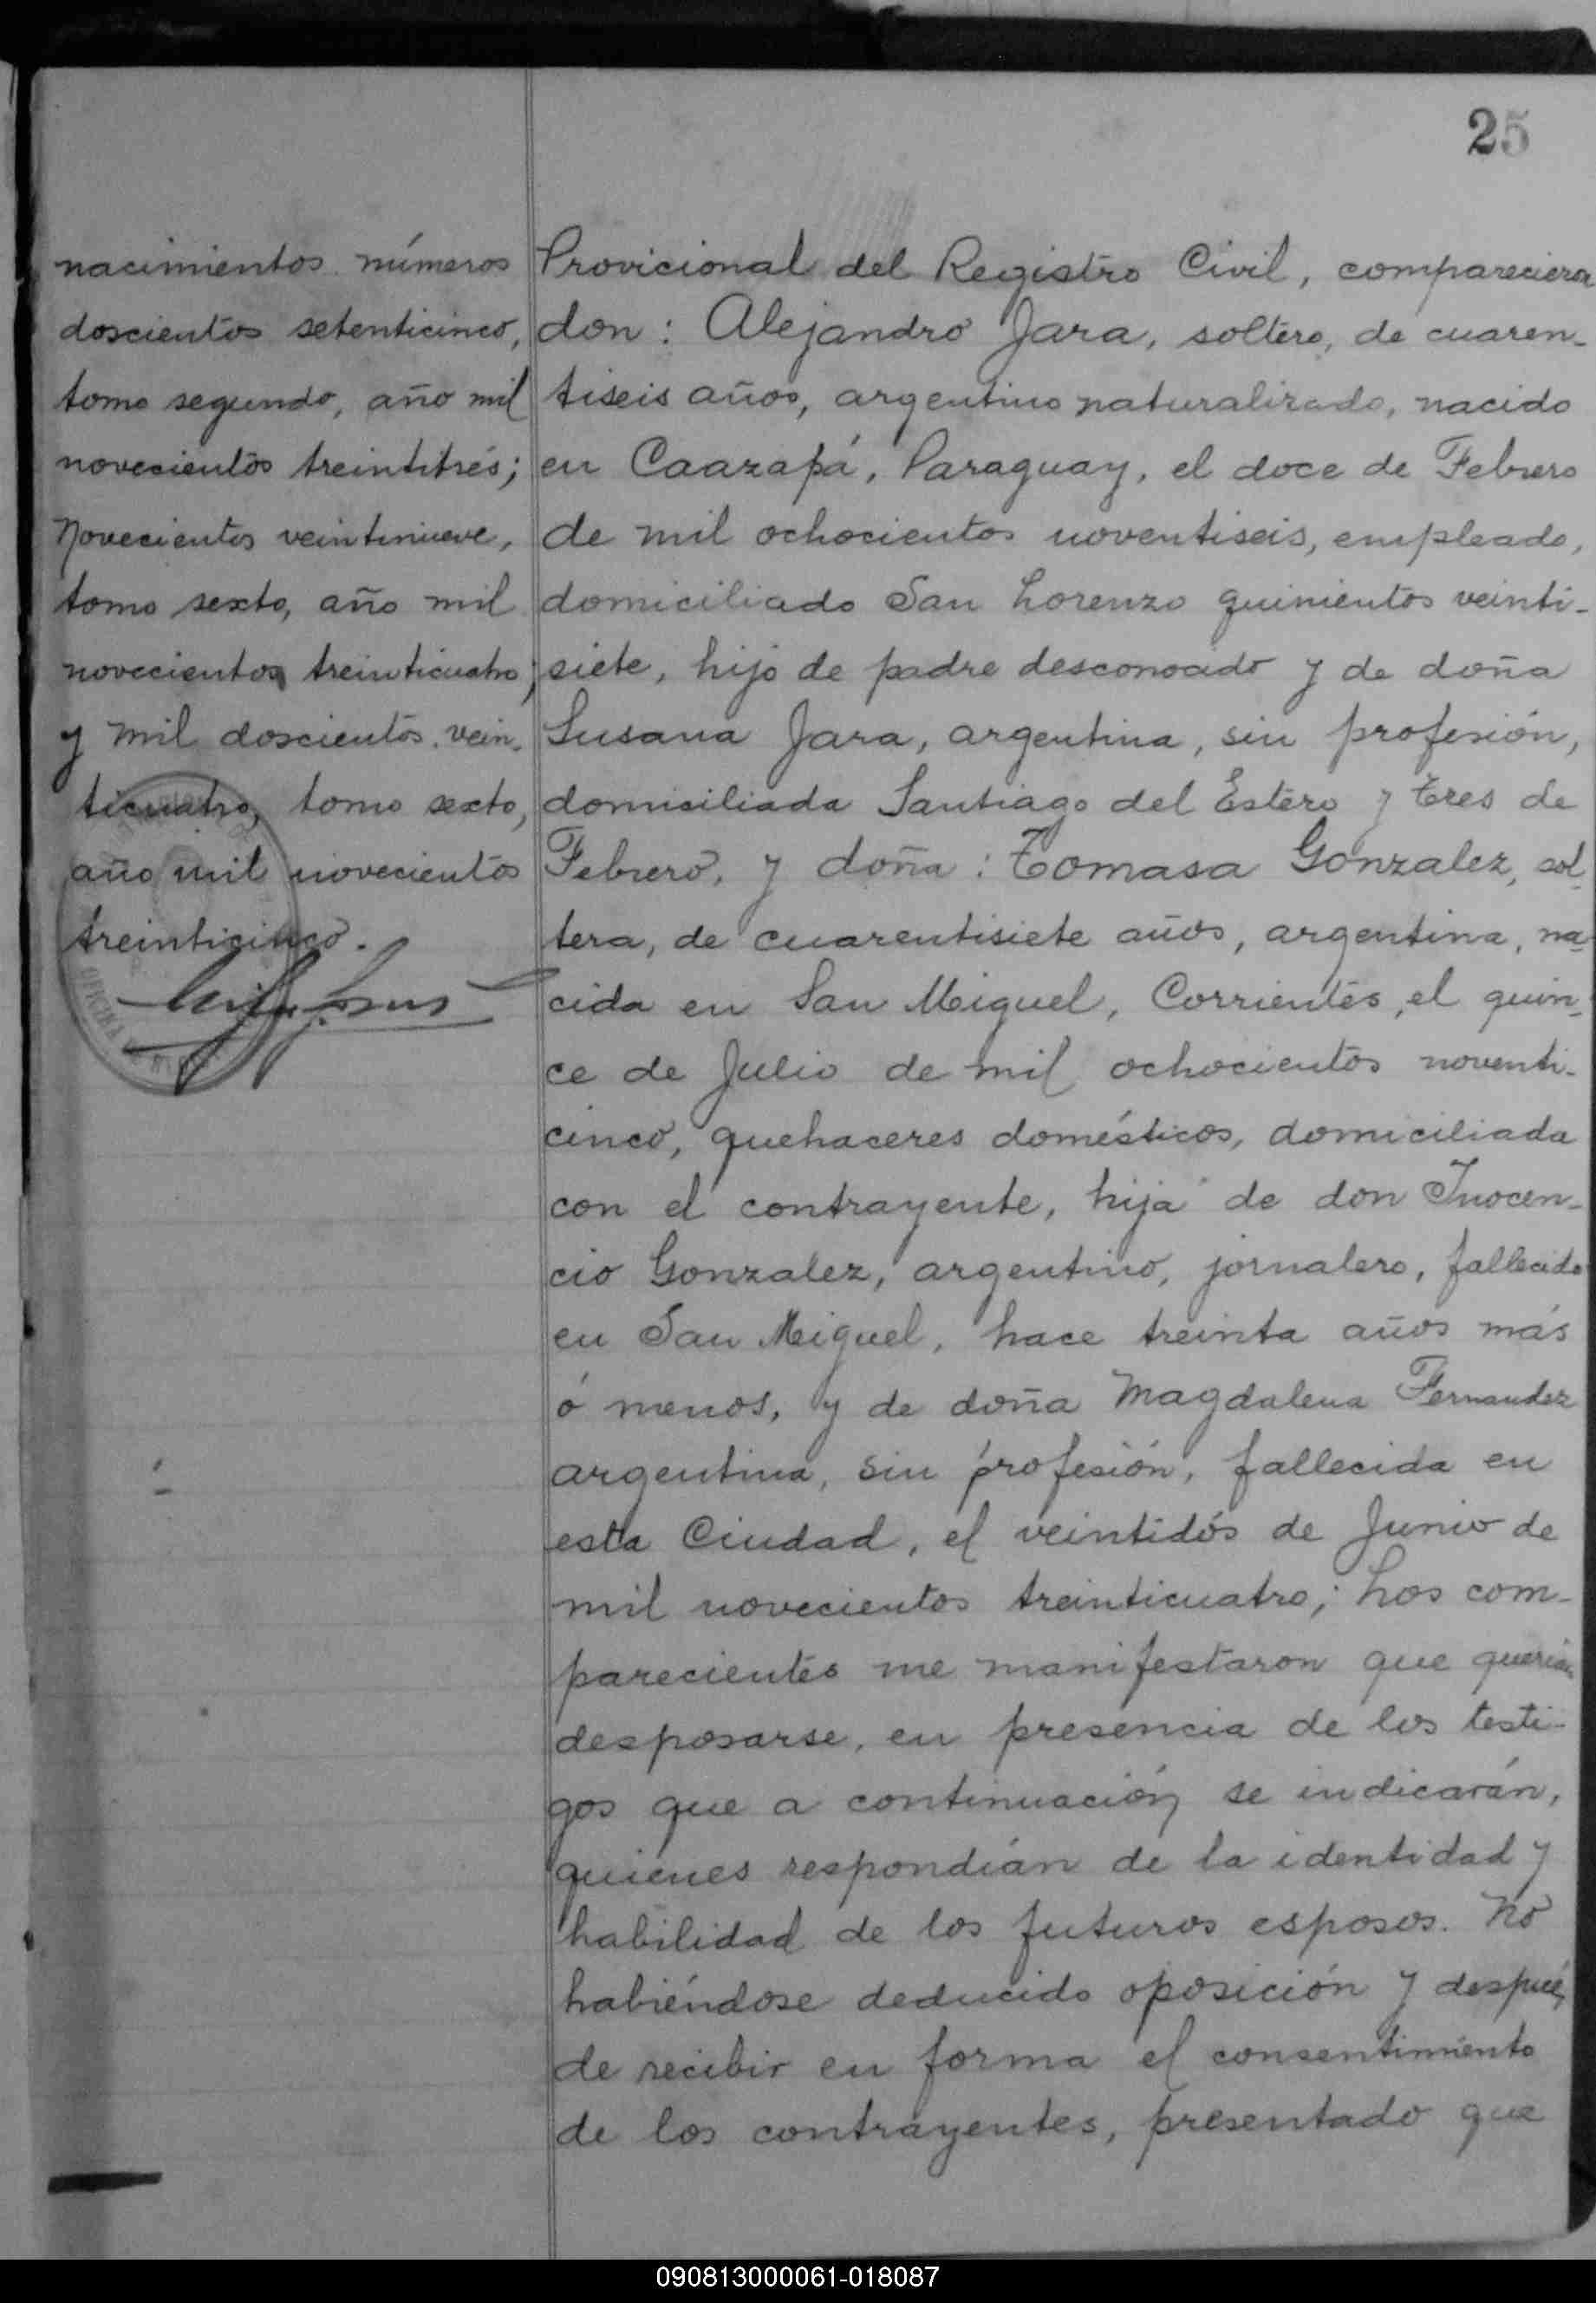 25
nacimientos números
doscientos setenticinco,
tomo segundo, año mil
novecientos treintitrés;
Novecientos veintinueve,
tomo sexto, año mil
novecientos treinticuatro;
y mil doscientos vein-
ticuatro, tomo sexto,
año mil novecientos
treinticinco.
OFICINA
Provicional del Registro Civil, comparecieron
don: Alejandro Jara, soltero, de cuaren-
tiseis años, argentino naturalizado, nacido
en Caazapá, Paraguay, el doce de Febrero
de mil ochocientos noventiseis, empleado,
domiciliado San Lorenzo quinientos veinti-
siete, hijo de padre desconocido y de doña
Susana Jara, argentina, sin profesión,
domiciliada Santiago del Estero y tres de
Febrero, y doña: Tomasa Gonzalez, sol-
tera, de cuarentisiete años, argentina, na-
cida en San Miguel, Corrientes, el quin-
ce de Julio de mil ochocientos noventi-
cinco, quehaceres domésticos, domiciliada
con el contrayente, hija de don Inocen-
cio Gonzalez, argentino, jornalero, fallecido
en San Miguel, hace treinta años más
ó menos, y de doña Magdalena Fernandez
argentina, sin profesión, fallecida en
esta Ciudad, el veintidós de Junio de
mil novecientos treinticuatro; Los com-
parecientes me manifestaron que querían
desposarse, en presencia de los testi-
gos que a continuación se indicarán,
quienes respondían de la identidad y
habilidad de los futuros esposos. No
habiéndose deducido oposición y después
de recibir en forma el consentimiento
de los contrayentes, presentado que
090813000061-018087